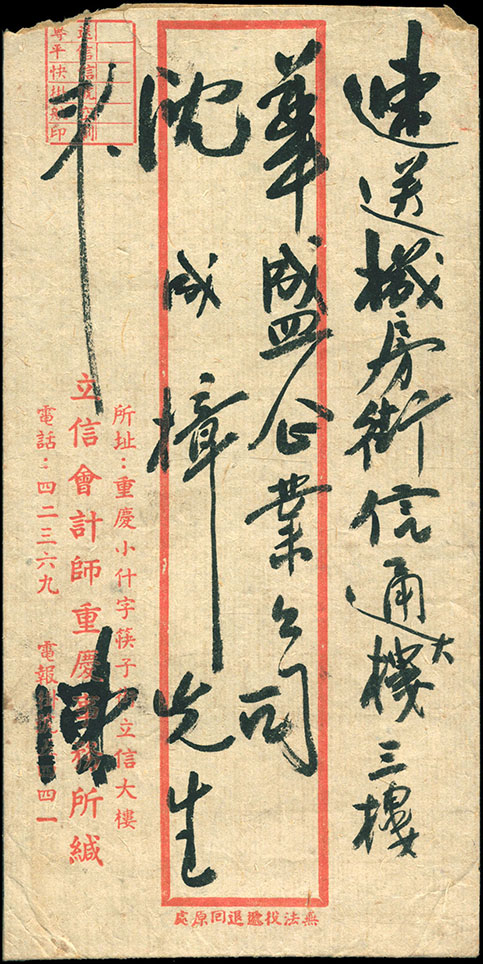 速送機房街信通大樓三樓
華盛企業公司
沈成樟先生
所址：重慶小什字筷子街立信大樓
立信會計師重慶事務所緘
電話：四二三六九 電報掛號
無法投遞退回原處